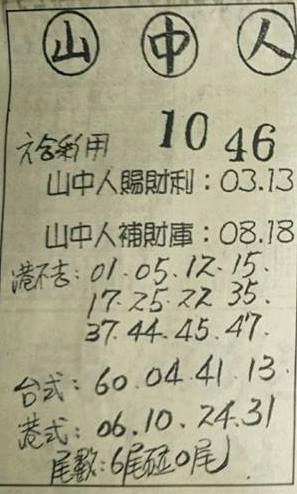 山 中 人
10 46
六合彩用
山中人賜財利：03.13
山中人補財庫：08.18
港不吉：01.05.12.15.
17.25.22 35.
37.44.45.47.
台式：60.04.41.13
港式：06.10.24.31
尾數：6尾碰0尾